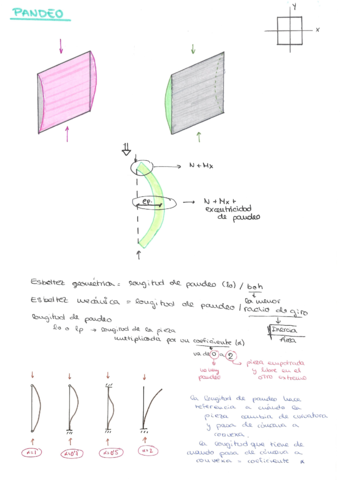 PANDEO
Y
X
N + Mx
ep.
N + Mx +
excentricidad
de pandeo
Esbeltez geométrica = longitud de pandeo (lo) / b o h
la menor
Esbeltez mecánica = longitud de pandeo / radio de giro
longitud de pandeo
Inercia
Área
lo o lp → longitud de la pieza
multiplicada por un coeficiente (α)
va de 0 a 2
no hay
pandeo
pieza empotrada
y libre en el
otro extremo
La longitud de pandeo hace
referencia a cuándo la
pieza cambia de curvatura
y pasa de cóncava a
convexa.
La longitud que tiene de
cuando pasa de cóncava a
convexa = coeficiente
α=1
α=2